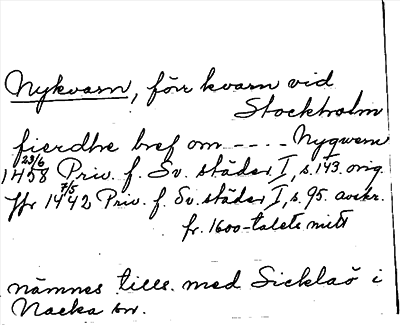 Nykvarn, förr kvarn vid
Stockholm
fierdhe bref om ---- Nyqwern
23/6 1458 Priv. f. Sv. städer I, s. 143. orig.
Jfr 7/5 1442 Priv. f. Sv. städer I, s. 95. avskr.
fr. 1600-talets mitt
nämnes tills. med Sicklaö i
Nacka sn.